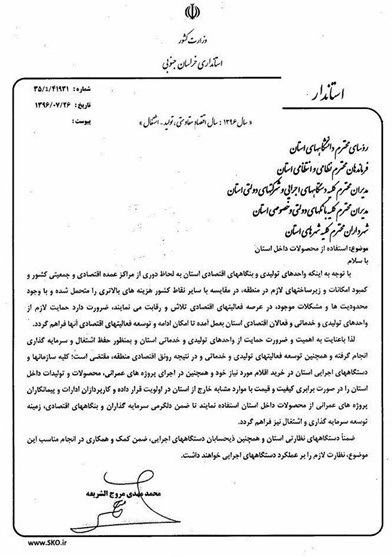 وزارت کشور
استانداری خراسان جنوبی
استاندار
شماره : ۳۵/۴/۴۱۹۳۱
تاریخ : ۱۳۹۶/۰۷/۲۶
پیوست :
« سال ۱۳۹۶ : سال اقتصاد مقاومتی ، تولید ، اشتغال »
رؤسای محترم دانشگاههای استان
فرماندهان محترم نظامی و انتظامی استان
مدیران محترم کلیه دستگاههای اجرایی و شرکتهای دولتی استان
مدیران محترم کلیه بانکهای دولتی و خصوصی استان
شهرداران محترم کلیه شهرهای استان
موضوع: استفاده از محصولات داخل استان
با سلام
با توجه به اینکه واحدهای تولیدی و بنگاههای اقتصادی استان به لحاظ دوری از مراکز عمده اقتصادی و جمعیتی کشور و
کمبود امکانات و زیرساختهای لازم در منطقه، در مقایسه با سایر نقاط کشور هزینه های بالاتری را متحمل شده و با وجود
محدودیت ها و مشکلات موجود، در عرصه فعالیتهای اقتصادی تلاش و رقابت می نمایند، ضرورت دارد حمایت لازم از
واحدهای تولیدی و خدماتی و فعالان اقتصادی استان بعمل آمده تا امکان ادامه و توسعه فعالیتهای اقتصادی آنها فراهم گردد.
لذا باعنایت به اهمیت و ضرورت حمایت از واحدهای تولیدی و خدماتی استان و بمنظور حفظ اشتغال و سرمایه گذاری
انجام گرفته و همچنین توسعه فعالیتهای تولیدی و خدماتی و در نتیجه رونق اقتصادی منطقه، مقتضی است؛ کلیه سازمانها و
دستگاههای اجرایی استان در خرید اقلام مورد نیاز خود و همچنین در اجرای پروژه های عمرانی، محصولات و تولیدات داخل
استان را در صورت برابری کیفیت و قیمت با موارد مشابه خارج از استان در اولویت قرار داده و کارپردازان ادارات و پیمانکاران
پروژه های عمرانی از محصولات داخل استان استفاده نمایند تا ضمن دلگرمی سرمایه گذاران و بنگاههای اقتصادی، زمینه
توسعه سرمایه گذاری و اشتغال نیز فراهم گردد.
ضمناً دستگاههای نظارتی استان و همچنین ذیحسابان دستگاههای اجرایی، ضمن کمک و همکاری در انجام مناسب این
موضوع، نظارت لازم را بر عملکرد دستگاههای اجرایی خواهند داشت.
محمد مهدی مروج الشریعه
www.SKO.ir